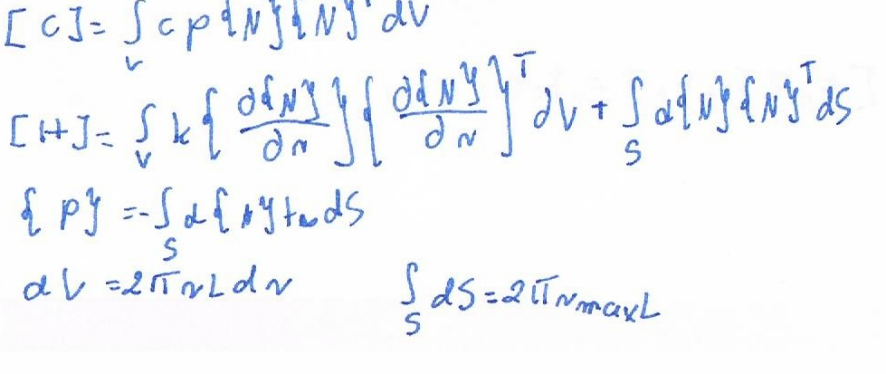 [C]= ∫_V c ρ {N}{N}^T dV
[H]= ∫_V k { ∂{N} / ∂r } { ∂{N} / ∂r }^T dV + ∫_S α{N}{N}^T dS
{P} =-∫_S α{N}t∞dS
dV =2πrLdr ∫_S dS=2πrmaxL